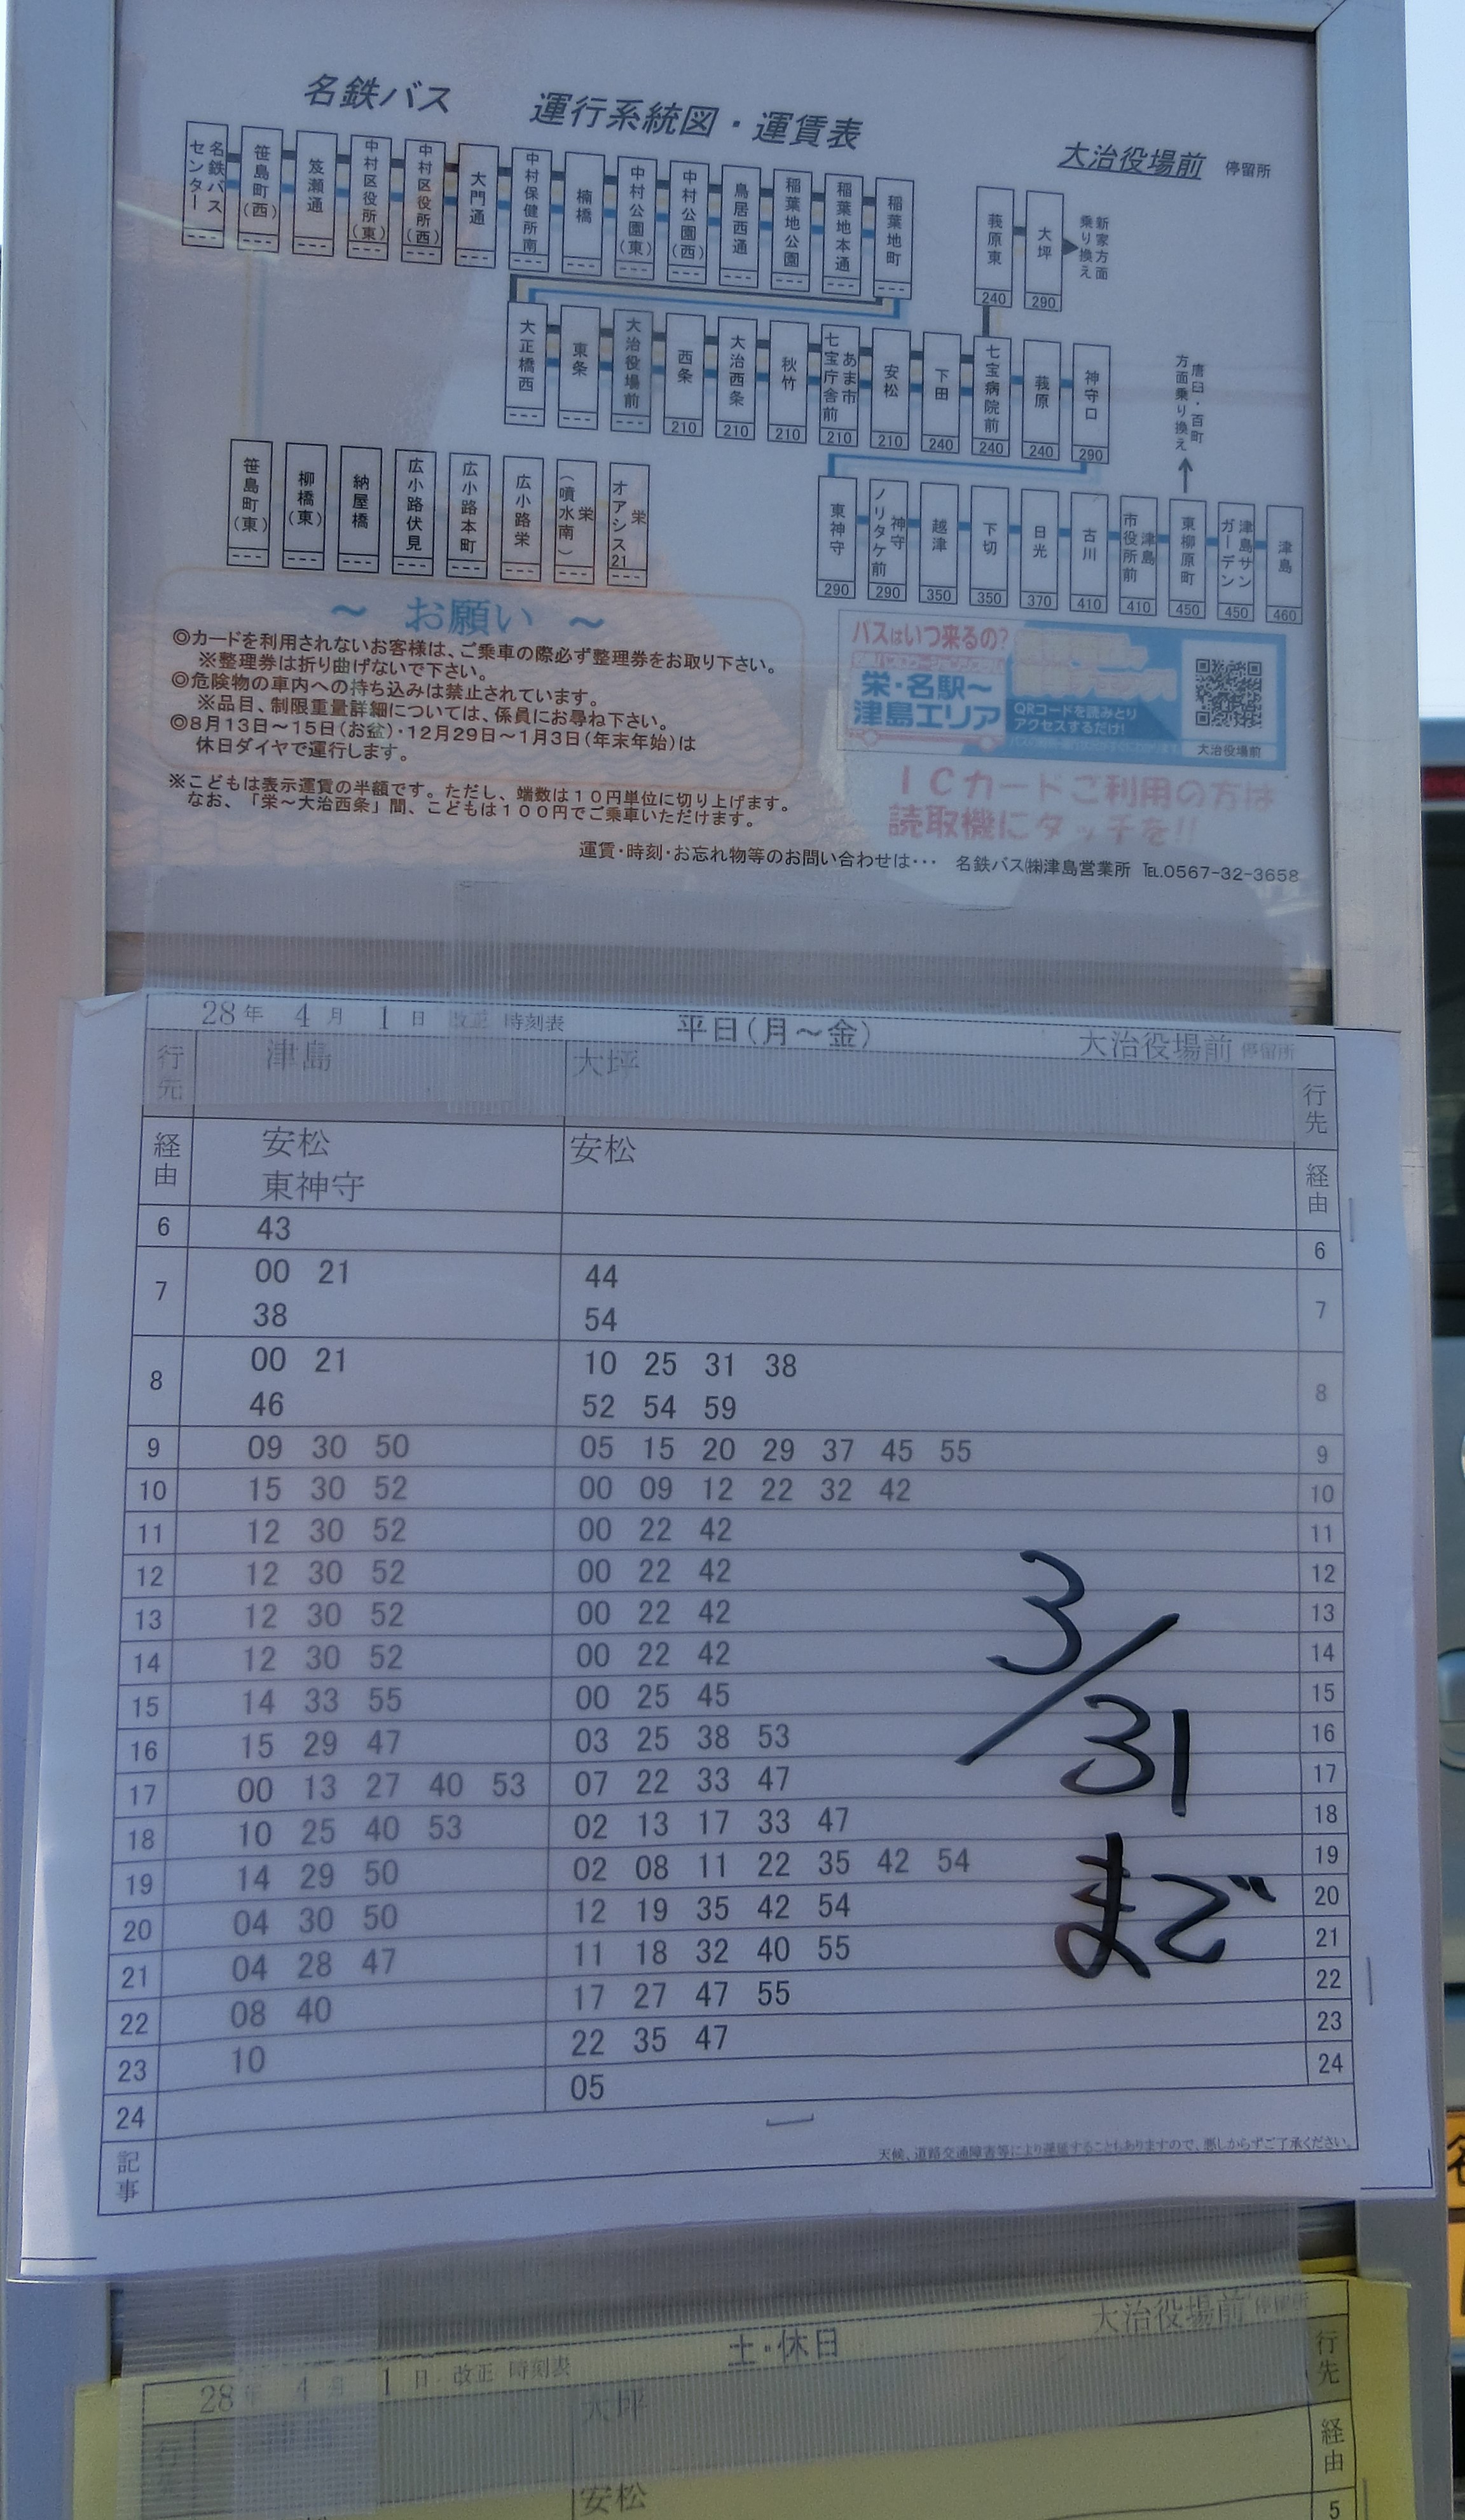 名鉄バス 運行系統図・運賃表
大治役場前 停留所
名鉄バスセンター --- 笹島町(西) --- 笈瀬通 --- 中村区役所(東) --- 中村区役所(西) --- 大門通 --- 中村保健所南 --- 楠橋 --- 中村公園(東) --- 中村公園(西) --- 鳥居西通 --- 稲葉地公園 --- 稲葉地本通 --- 稲葉地町 ---
莪原東 240 大坪 290 新家方面乗り換え
大正橋西 --- 東条 --- 大治役場前 --- 西条 210 大治西条 210 秋竹 210 あま市七宝庁舎前 210 安松 210 下田 240 七宝病院前 240 莪原 240 神守口 290
唐臼・百町方面乗り換え
笹島町(東) --- 柳橋(東) --- 納屋橋 --- 広小路伏見 --- 広小路本町 --- 広小路栄 --- 栄(噴水南) --- 栄オアシス21 ---
東神守 290 神守ノリタケ前 290 越津 350 下切 350 日光 370 古川 410 津島市役所前 410 東柳原町 450 津島サンガーデン 450 津島 460
~ お願い ~
◎カードを利用されないお客様は、ご乗車の際必ず整理券をお取り下さい。
※整理券は折り曲げないで下さい。
◎危険物の車内への持ち込みは禁止されています。
※品目、制限重量詳細については、係員にお尋ね下さい。
◎8月13日~15日(お盆)・12月29日~1月3日(年末年始)は
休日ダイヤで運行します。
※こどもは表示運賃の半額です。ただし、端数は10円単位に切り上げます。
なお、「栄~大治西条」間、こどもは100円でご乗車いただけます。
バスはいつ来るの?
栄・名駅~
津島エリア
QRコードを読みとり
アクセスするだけ!
大治役場前
ICカードご利用の方は
読取機にタッチを!!
運賃・時刻・お忘れ物等のお問い合わせは… 名鉄バス㈱津島営業所 ℡.0567-32-3658
28年 4月 1日 改正 時刻表 平日(月~金) 大治役場前 停留所
行先 津島 大坪 行先
経由 安松 東神守 安松 経由
6 43 6
7 00 21 44 7
38 54
8 00 21 10 25 31 38 8
46 52 54 59
9 09 30 50 05 15 20 29 37 45 55 9
10 15 30 52 00 09 12 22 32 42 10
11 12 30 52 00 22 42 11
12 12 30 52 00 22 42 12
13 12 30 52 00 22 42 13
14 12 30 52 00 22 42 14
15 14 33 55 00 25 45 15
16 15 29 47 03 25 38 53 16
17 00 13 27 40 53 07 22 33 47 17
18 10 25 40 53 02 13 17 33 47 18
19 14 29 50 02 08 11 22 35 42 54 19
20 04 30 50 12 19 35 42 54 20
21 04 28 47 11 18 32 40 55 21
22 08 40 17 27 47 55 22
23 10 22 35 47 23
24 05 24
3/31
まで
記事
天候、道路交通障害等により遅延することもありますので、悪しからずご了承ください。
28年 4月 1日 改正 時刻表 土・休日 大治役場前 停留所
行先 大坪 行先
安松 経由
5